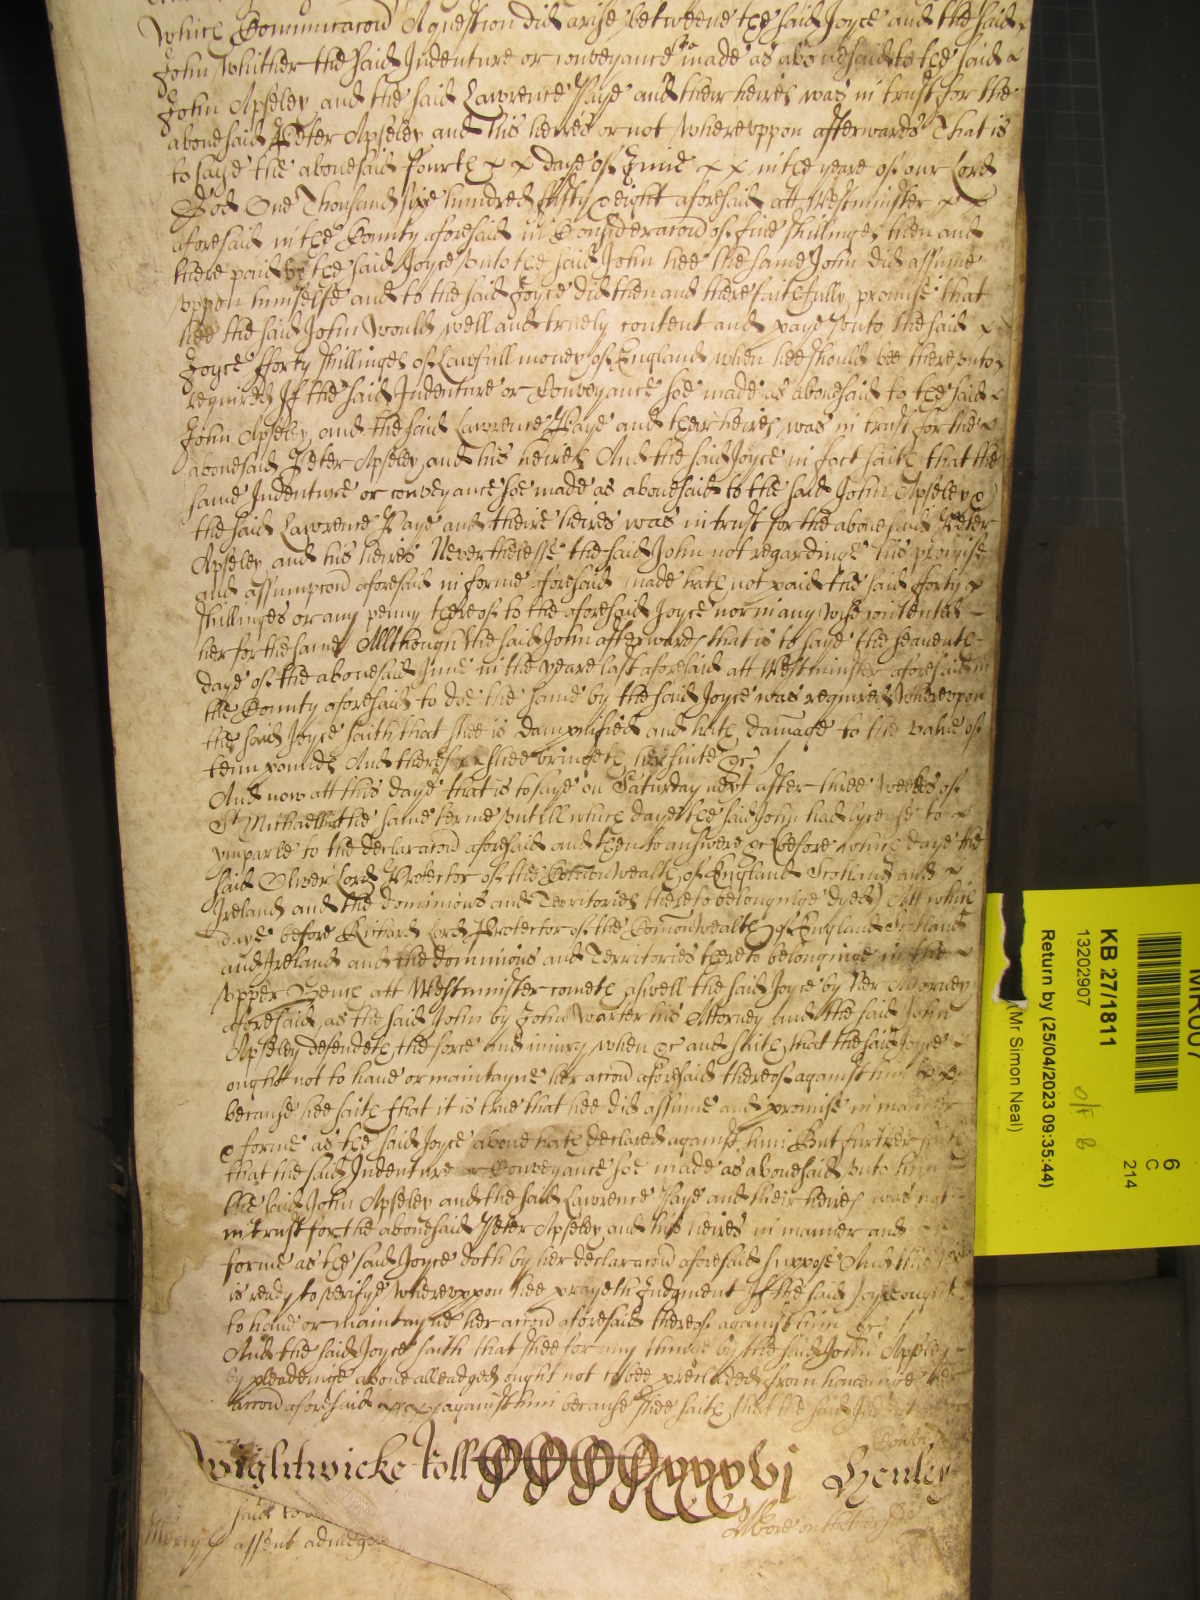 which Comunicacon A question did arise betweene the said Joyce and the said
John whither the said Indenture or conveyance soe made as abovesaid to the said
John Apseley and the said Lawrence Paye and their heires was in trust for the
abovesaid Peter Apseley and his heires or not wherevppon afterwards That is
to saye the abovesaid fourth x x daye of June x x in the yeare of our Lord
God One Thousand sixe hundred fifty & eight aforesaid att Westminster x x
aforesaid in the County aforesaid in Consideracon of five shillinges then and
there paid by the said Joyce vnto the said John hee the same John did assume
vppon himselfe and to the said Joyce did then and there faithfully promise that
hee the said John would well and truely content and paye vnto the said x
Joyce fforty shillinges of Lawfull money of England when hee should bee therevnto
required If the said Indenture or Conveyance soe made as abovesaid to the said
John Apseley and the said Lawrence Paye and their heires was in trust for the
abovesaid Peter Apseley and his heires And the said Joyce in fact saith that the
same Indenture or conveyance soe made as abovesaid to the said John Apseley &
the said Lawrence Paye and theire heires was in trust for the abovesaid Peter
Apseley and his heires Neverthelesse the said John not regardinge his promise
and assumpcon aforesaid in forme aforesaid made hath not paid the said forty x
shillinges or any penny thereof to the aforesaid Joyce nor in any wise contented
her for the same Allthough the said John afterwards that is to saye the seaventh
daye of the abovesaid June in the yeare last aforesaid att Westminster aforesaid in
the County aforesaid to doe the same by the said Joyce was required wherevpon
the said Joyce saith that shee is dampnified and hath damage to the value of
tenn pounds And thereof shee bringeth her suite &c
And now att this daye that is to saye on Saturday next after three weekes of
St Michaell the same terme vntill which daye the said John had lycense to x
imparle to the declaracon aforesaid and then to answere &c (before which daye the
said Oliver Lord Protector of the Comon Wealth of England Scotland and x
Ireland and the dominions and Territories thereto belonginge dyed) Att which
daye before Richard Lord Protector of the Comon Wealth of England Scotland
and Ireland and the dominions and Territories thereto belonginge in the x
vpper Bench att Westminster cometh aswell the said Joyce by her Attorney
aforesaid as the said John by John Warter his Attorney and the said John
Apseley defendeth the force and iniury when &c and saith that the said Joyce
ought not to have or maintayne her accon aforesaid thereof against him x x
because hee saith that it is true that hee did assume and promise in manner
& forme as the said Joyce above hath declared against him But further saith
that the said Indenture or Conveyance soe made as abovesaid vnto him
the said John Apseley and the said Lawrence Paye and their heires was not
in trust for the abovesaid Peter Apseley and his heires in manner and
forme as the said Joyce doth by her declaracon aforesaid suppose And this hee
is ready to verifye wherevppon hee prayeth Judgment If the said Joyce ought
to have or maintayne her accon aforesaid thereof against him &c
And the said Joyce saith that shee for any thinge by the said John Apseley
by pleadinge above alleadged ought not to bee precluded from haveinge her
accon aforesaid against him because shee saith that the said Indenture
Conv
Wightwicke Roll xxxvj Henley
said to
assent adiudged
More on the other side
KB 27/1811
13202907
Return by (25/04/2023 09:35:44)
(Mr Simon Neal)
O/F B
6
C
214